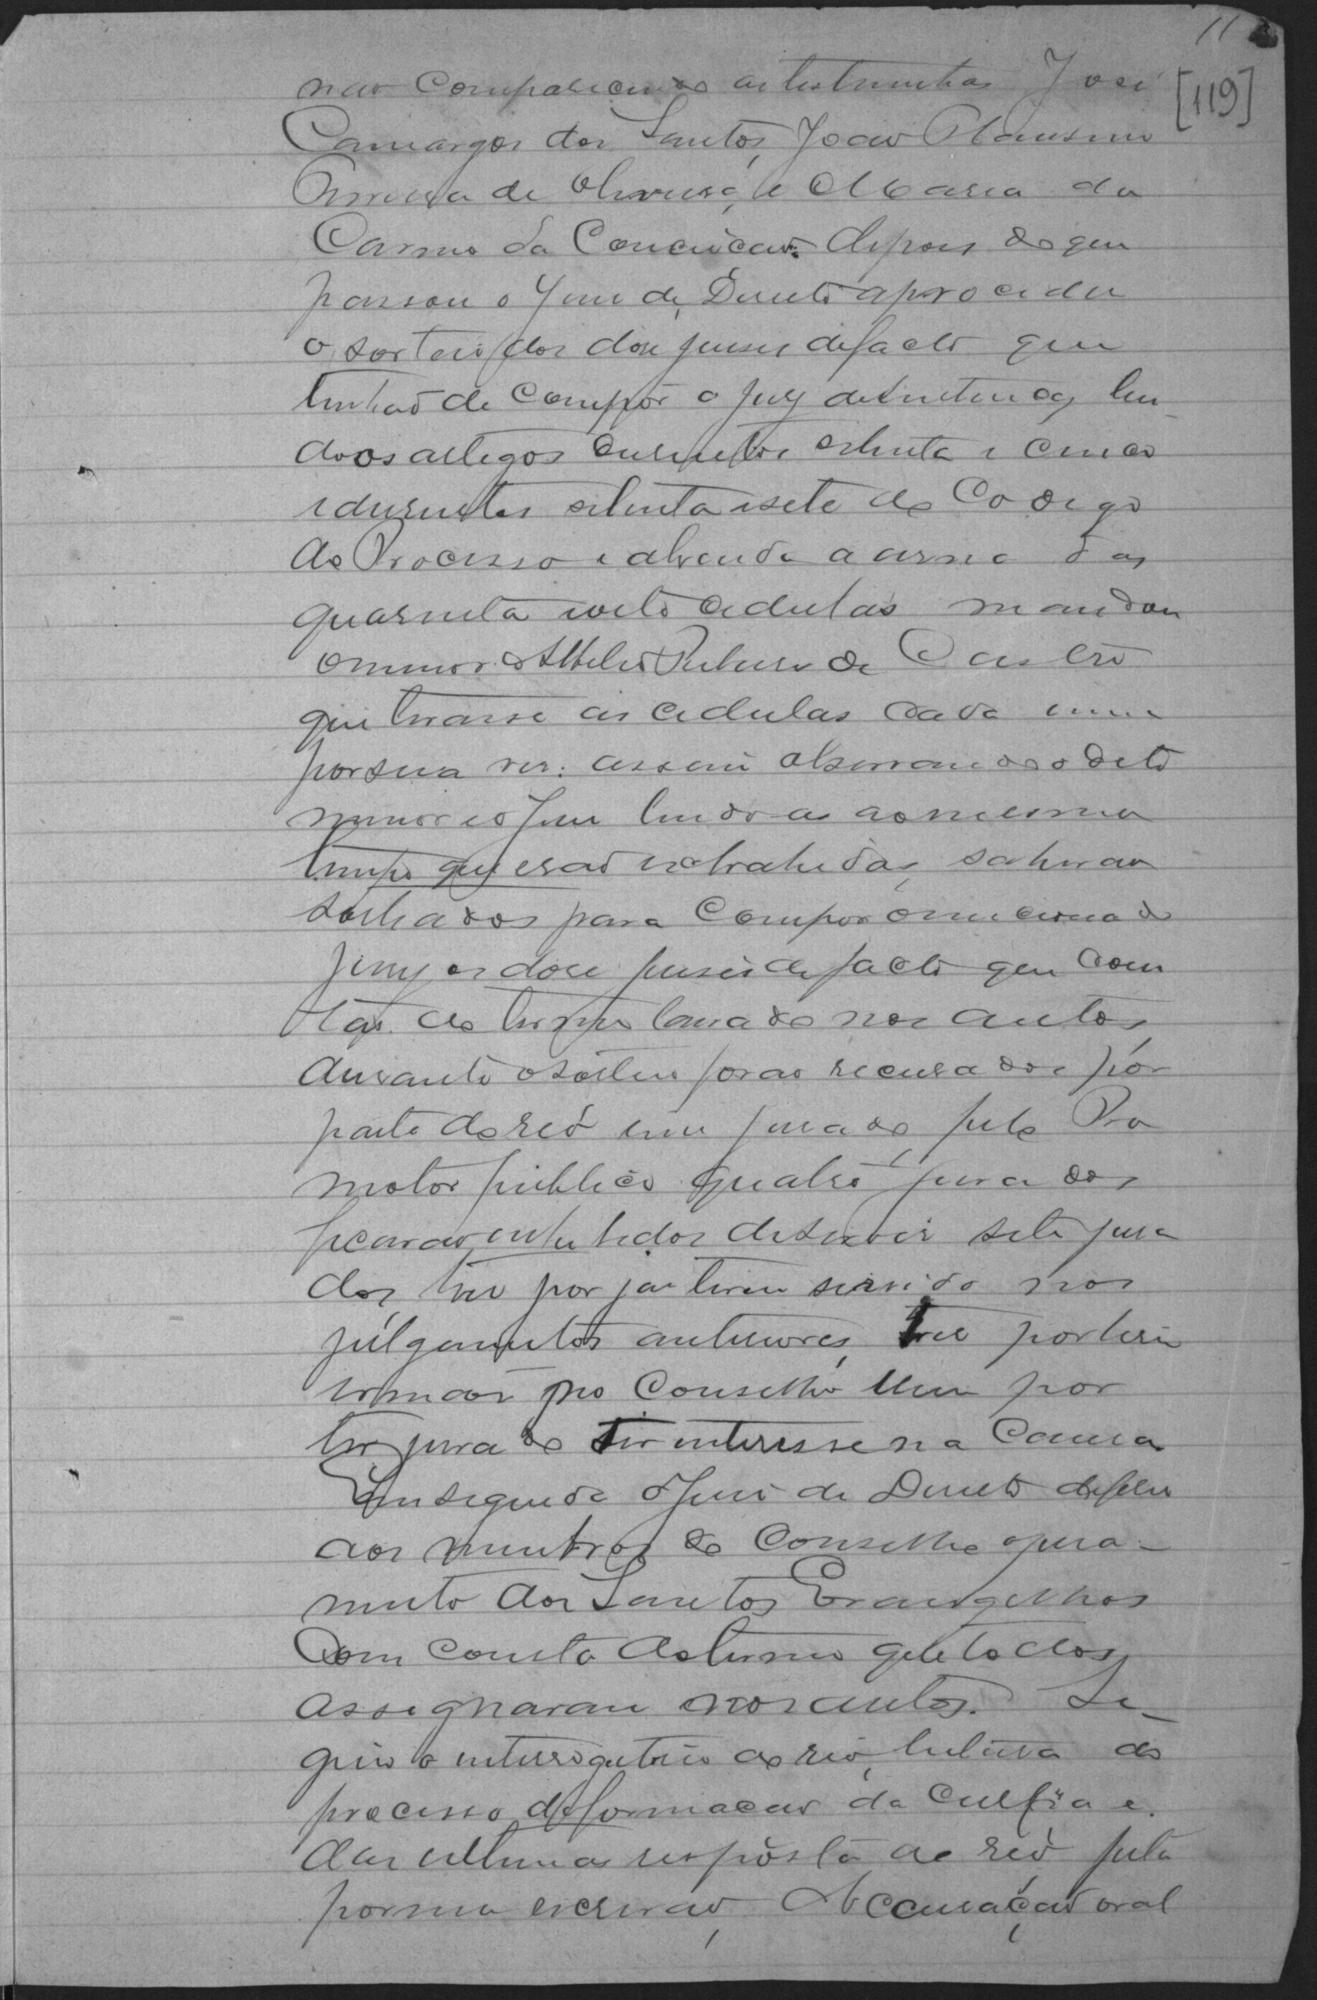 11
[119]
não comparecendo as testemunhas José
Camargos dos Santos, João
de Oliveira, e Maria do
Carmo da Conceicão. depois do que
passou o Juiz de Direito aproceder
o sorteio dos dose juises defacto que
tinhão de compôr o jury desentença, len-
doos artegos dusentos setenta e cinco
edusentos setenta esete do Codego
do Processo e abrindo a urna das
quarenta oito cedulas mandou
omenor Ribeiro de Castro
que tirasse as cedulas cada uma
porsua ves: assim observando o dito
menor eo Juiz lendo as aomesmo
tempo que erão extrahidas, sahirão
sorteados para compor omencionado
jury os dose juises de facto que cons
tão do termo lavrado nos autos,
durante osorteio forão recusados por
parte doreó um jurado, pelo Pro
motor público quatro jurados
ficarão, inhebidos deservir sete jura
dos, tres por ja terem servido nos
julgamentos anteriores, tres porterem
irmãos no Conselho Um por
ter jurado ter interesse na causa
Em seguida o Juis de Direito deferiu
aos membros do conselho ojura-
mento dos Santos Evangelhos
Com consta dotermo que todos
assignarão nos autos. Se-
guio o interrogatorio do reó, leitura do
processo, deformacão da culpa e.
das ultimas resposta do reó feita
pormim escrivão, Accusação oral